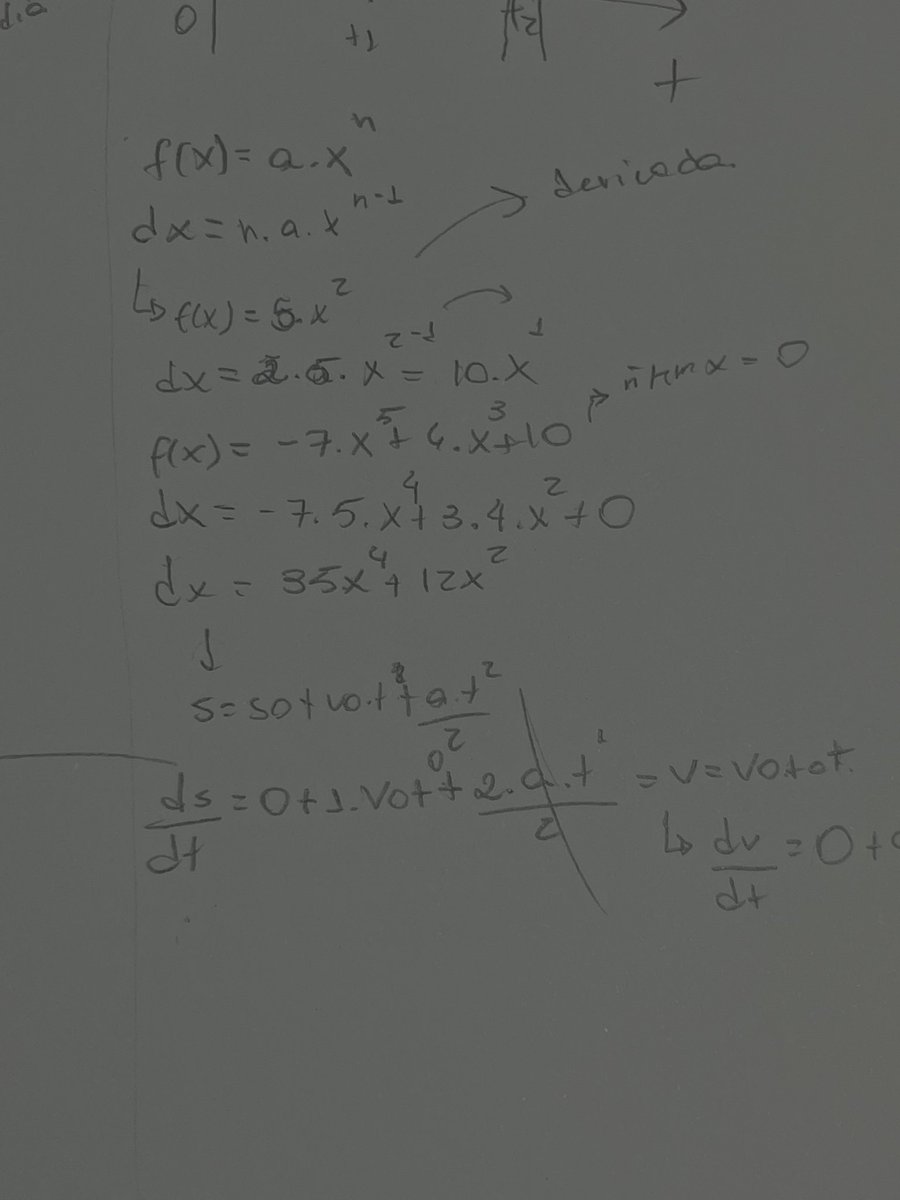 dia 0 +1 t2
t
f(x) = a.x^n
dx = n.a.x^n-1 → derivada
↳ f(x) = 5.x^2
dx = 2.5.x^2-1 = 10.x^1
f(x) = -7.x^5 + 4.x^3 + 10 → ñ tem x = 0
dx = -7.5.x^4 + 3.4.x^2 + 0
dx = 35x^4 + 12x^2
↓
s = so + vo.t^1 + a.t^2/2
ds/dt = 0 + 1.vot^0 + 2.a.t^1/2 = v = vo + at
↳ dv/dt = 0 +